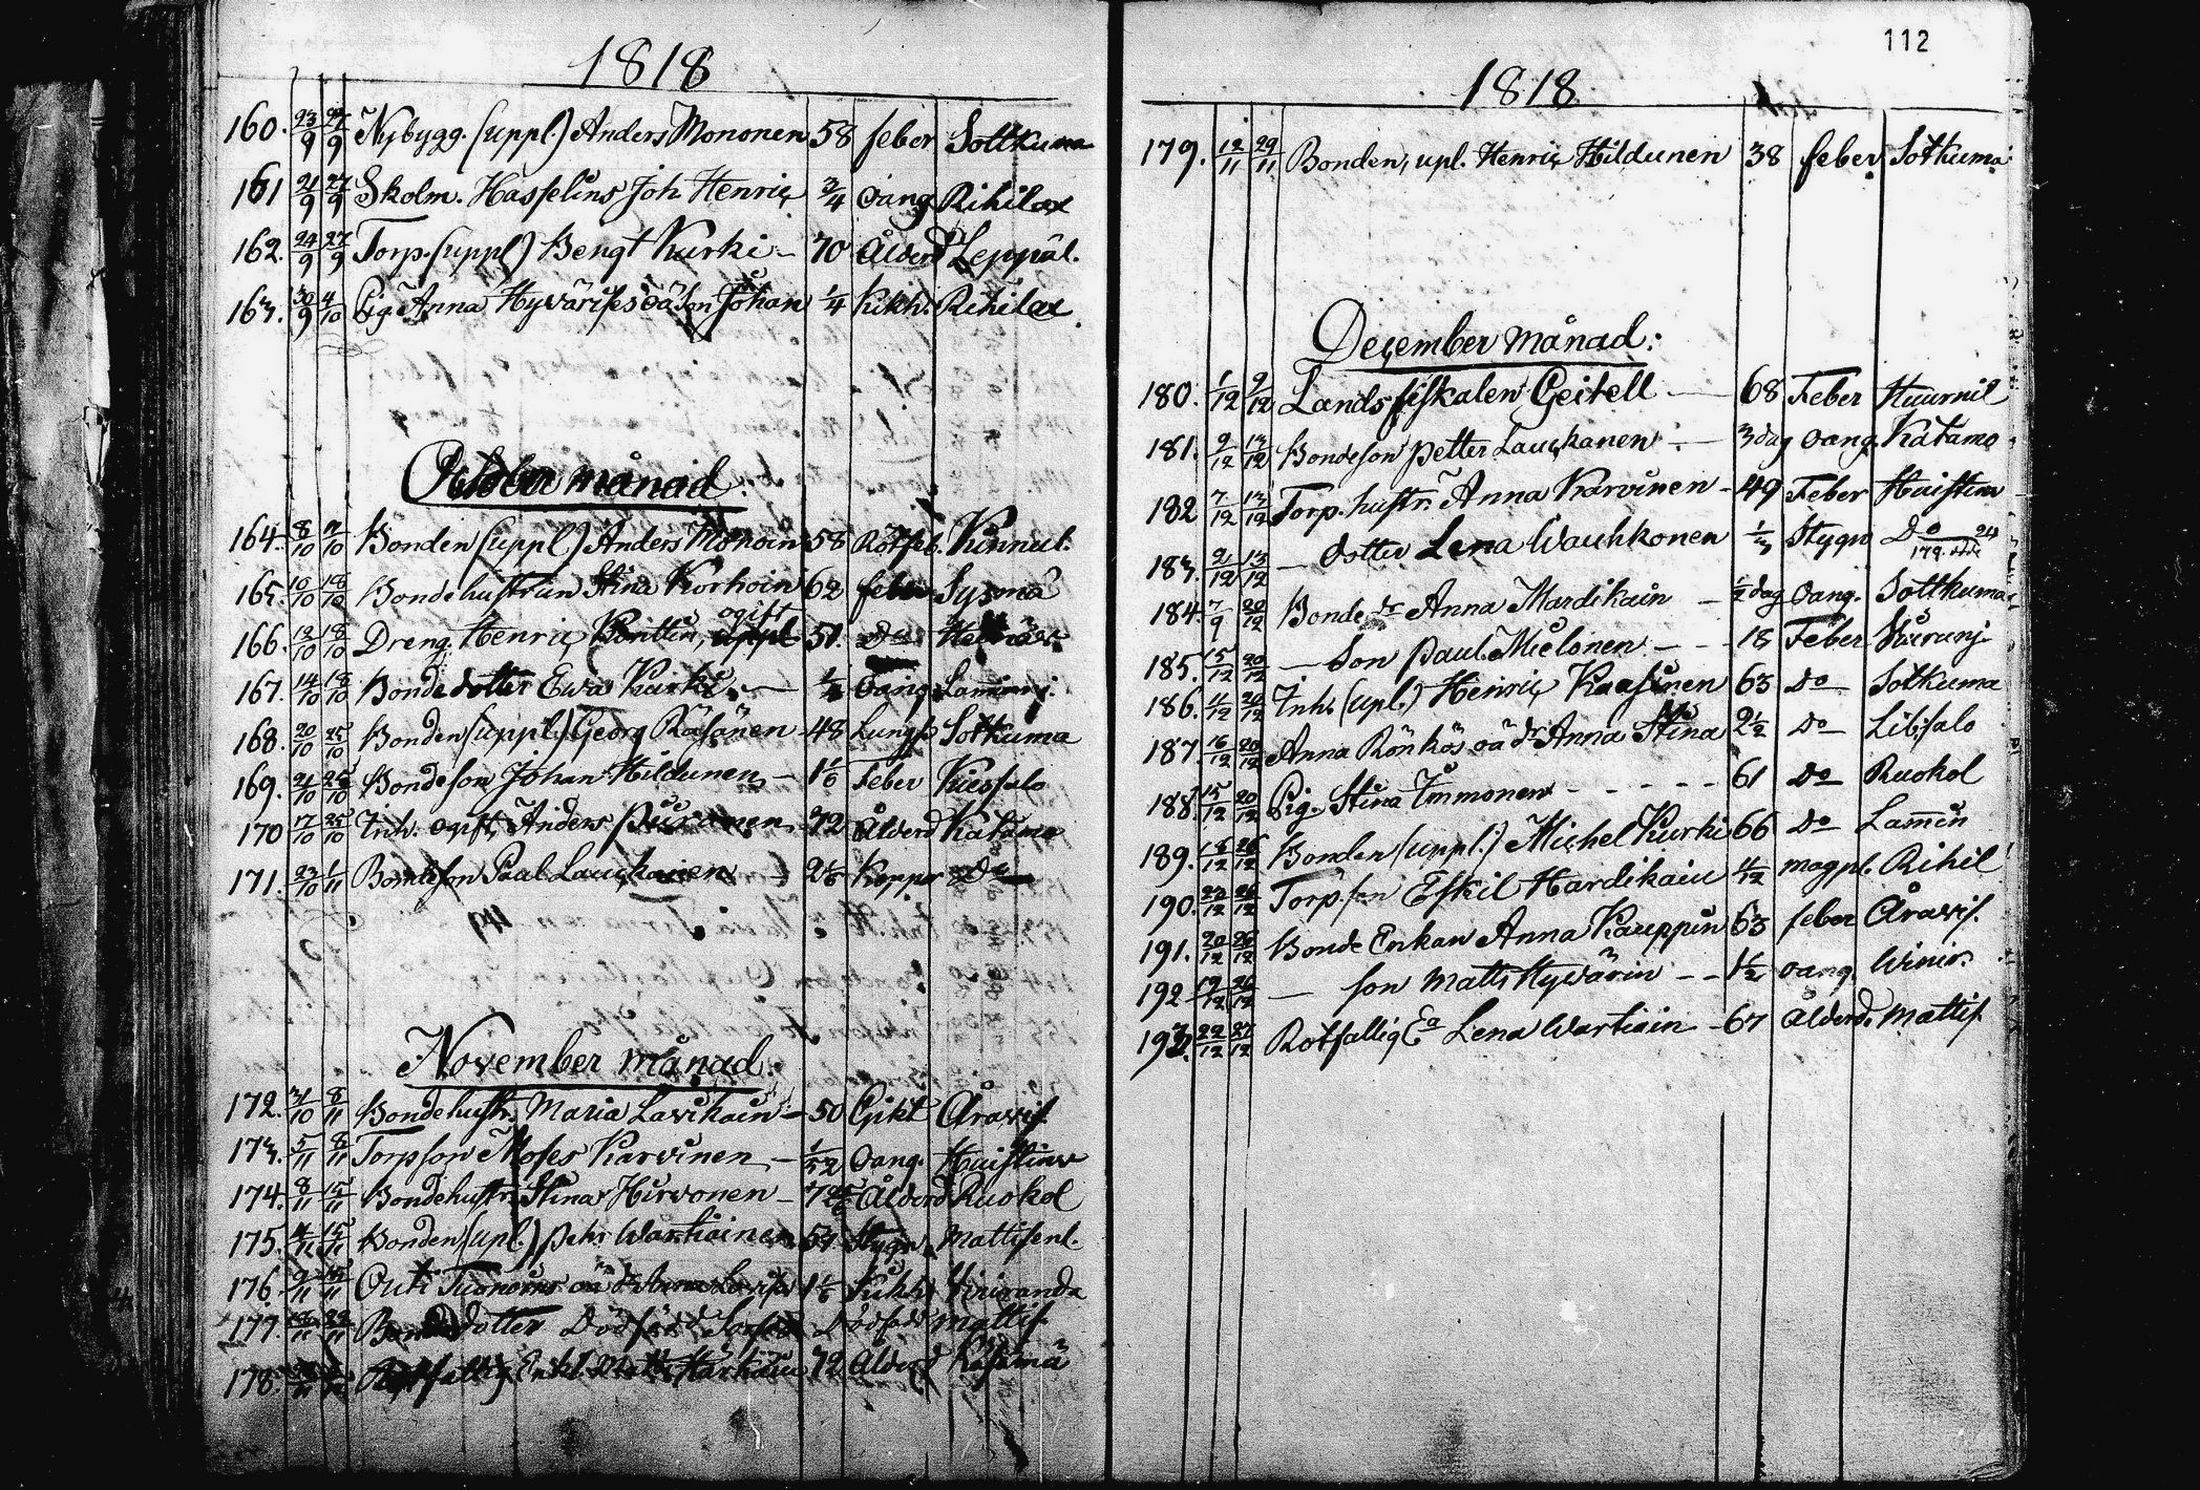 1818
160. 23/9 27/9 Nybygg. (uppl.) Anders Mononen 58 feber Sottkuma
161 21/9 27/9 Skolm. Hasselins Joh Henric 3/4 oang Rihilax
162. 24/9 27/9 Torp. (uppl) Bengt Kurki - 70 Ålderd Leppäl.
163. 30/9 4/10 Pig. Anna Hyvärises oä Son Johan 1/4 Kikh. Rihilax
October månad.
164. 8/10 /10 Bonden (uppl) Anders 58 Rötfeb. Kinnul.
165. 10/10 18/10 Bondehustrun Stina Korhoin 62 feber Sysmä
166. 13/10 18/10 Dreng. Henric ogift 51. Do
167. 14/10 18/10 Bondedotter Ewa Kurki - oang
168. 20/10 25/10 Bonden (uppl.) Georg Räsänen 48 Lungs Sotkuma
169. 21/10 25/10 Bondeson Johan Hildunen - 1 1/6 Feber Kiessalo
170 17/10 25/10 Inh. ogift, Anders Puranen 72 Ålderd Katamo
171. 23/10 1/11 Bondeson Paal Lauckanen 2 1/6 Koppor Do
November månad.
172. 31/10 8/11 Bondehustr. Maria Lavikain - 50 Gikt Aravis.
173. 5/11 8/11 Torpson Moses Karvinen - 1/52 Oang. Huistinv
174. 8/11 15/11 Bondehustr. Stina Hirvonen - 72 Ålderd Ruokol
175. /11 15/11 Bonden (upl.) Pehr Wartiainen Stygn Mattisenl.
176. 9/11 15/11 Outi oä dr Anna Lovisa 1 1/6 Kikh Viniranda
177. /11 22/11 Bondedotter Dödfödd Dödfödd Mattis.
178. Rotfallig Enkl. Matts 72 Ålderd
112
1818
179. 12/11 29/11 Bonden, upl. Henric Hildunen 38 feber Sotkuma
December månad:
180. 1/12 9/12 Landsfiskalen Geitell - 68 Feber Huurnil
181. 9/12 13/12 Bondeson Petter Lauckanen - 3 dag oang. Katamo
182 7/12 13/12 Torp. hustr. Anna Karvinen - 49 Feber Huistinv
183. 9/12 13/12 - dotter Lena Wauhkonen 1/3 Stygn Do
184. 7/9 20/12 Bonde dr Anna Mardikain - 1/2 dag Oang. Sottkuma
185. 15/12 20/12 - Son Paul Mielonen - - 18 Feber
186. 11/12 20/12 Inh. (upl.) Henric Kaasinen 63 Do Sotkuma
187. 16/12 20/12 Anna Rönkös oä dr Anna Stina 2 1/2 Do Libisalo
188. 15/12 20/12 Pig. Stina Immonen - - - - - 61 Do Ruokol
189. 18/12 26/12 Bonden (uppl.) Michel Kurki 66 Do Lamin
190. 23/12 26/12 Torp. son Eskil Hardikain 4/12 magpl. Rihil
191. 20/12 26/12 Bonde Enkan Anna Kauppin 63 feber Aravis.
192 19/12 26/12 - son Matts Hyvärin - - 1 1/2 oang. Winir.
193. 22/12 27/12 Rotfallig Ea Lena Wartiain - 67 Ålderd. Mattis.